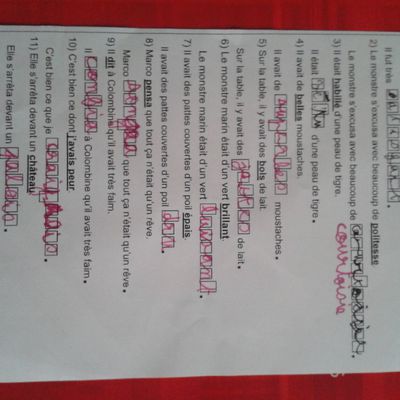 Il fut très
2) Le monstre s'excusa avec beaucoup de politesse
Le monstre s'excusa avec beaucoup de
courtoisie
3) Il était habillé d'une peau de tigre.
Il était vêtu d'une peau de tigre.
4) Il avait de belles moustaches.
Il avait de superbes moustaches.
5) Sur la table, il y avait des pots de lait.
Sur la table, il y avait des de lait.
6) Le monstre marin était d'un vert brillant.
Le monstre marin était d'un vert luisant.
7) Il avait des pattes couvertes d'un poil épais.
Il avait des pattes couvertes d'un poil
8) Marco pensa que tout ça n'était qu'un rêve.
Marco songea que tout ça n'était qu'un rêve.
9) Il dit à Colombine qu'il avait très faim.
Il à Colombine qu'il avait très faim.
10) C'est bien ce dont j'avais peur.
C'est bien ce que je craignais.
11) Elle s'arrêta devant un château.
Elle s'arrêta devant un